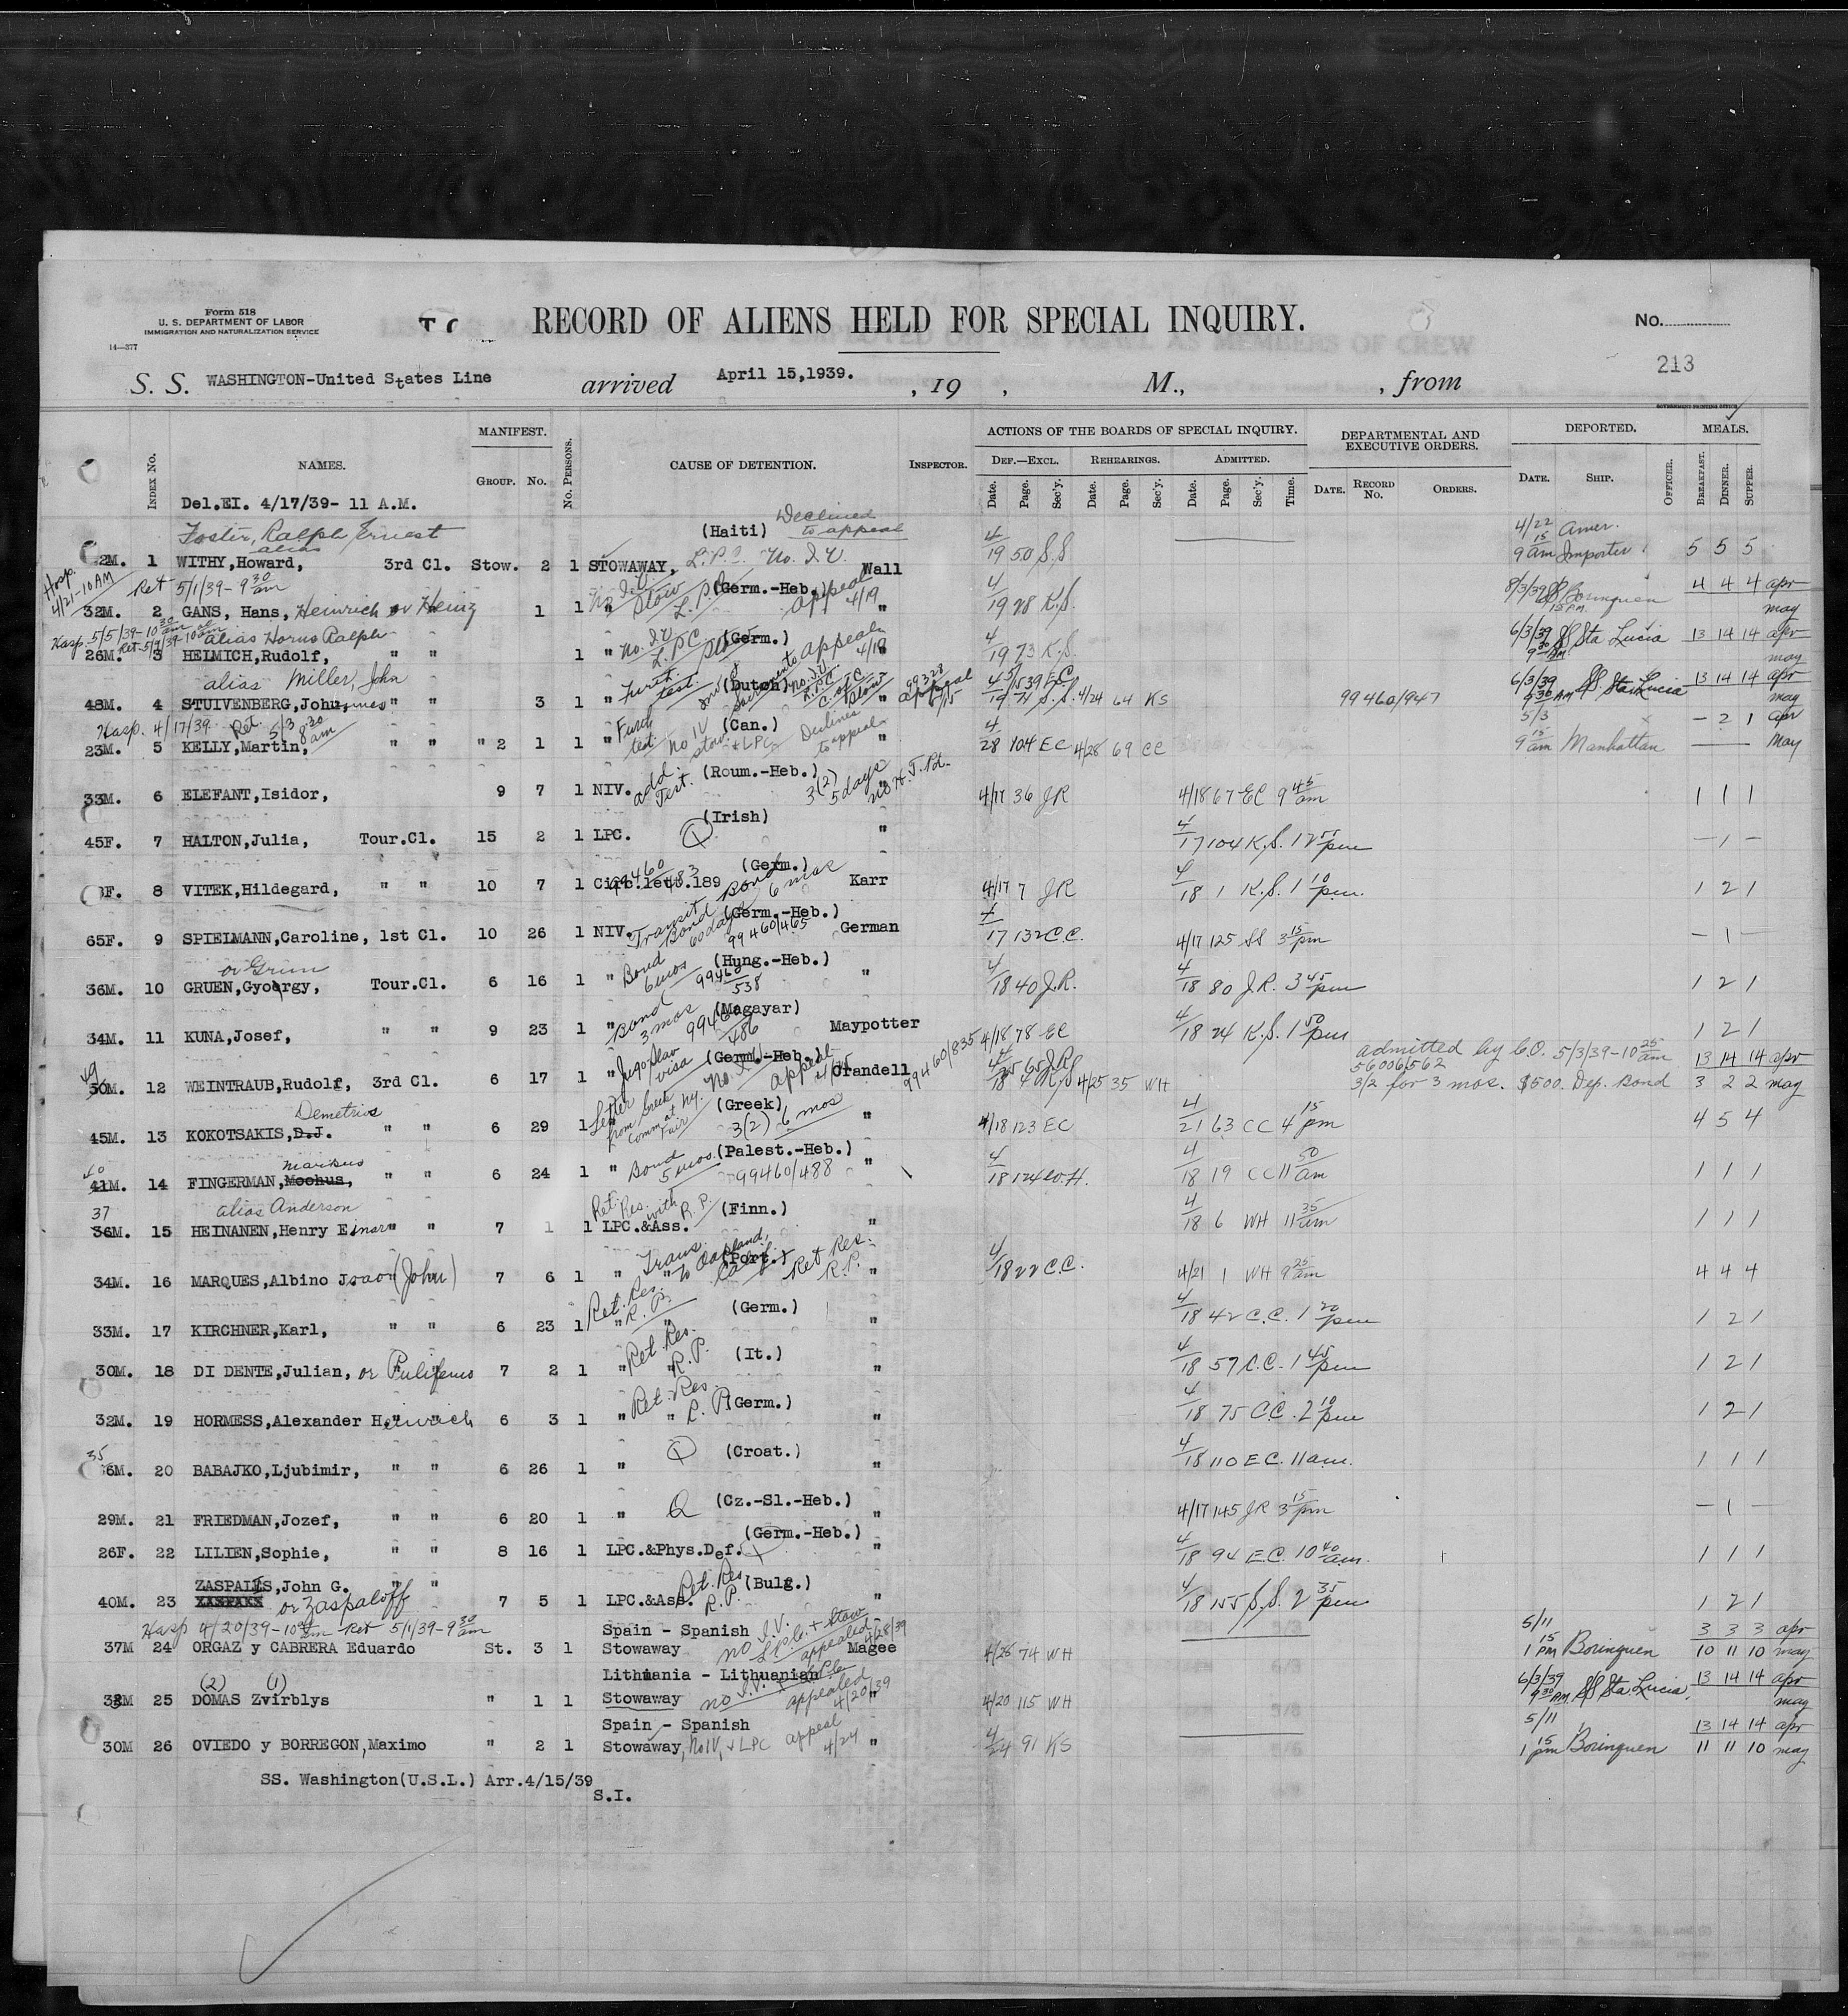 Form 518
U. S. DEPARTMENT OF LABOR
IMMIGRATION AND NATURALIZATION SERVICE
14—377
RECORD OF ALIENS HELD FOR SPECIAL INQUIRY.
No.
213
S. S. WASHINGTON-United States Line arrived April 15,1939. , 19 , M., , from
GOVERNMENT PRINTING OFFICE
INDEX No. NAMES. MANIFEST. GROUP. No. No. PERSONS. CAUSE OF DETENTION. INSPECTOR. ACTIONS OF THE BOARDS OF SPECIAL INQUIRY. DEF.—EXCL. Date. Page. Sec'y. REHEARINGS. Date. Page. Sec'y. ADMITTED. Date. Page. Sec'y. Time. DEPARTMENTAL AND EXECUTIVE ORDERS. DATE. RECORD No. ORDERS. DEPORTED. DATE. SHIP. OFFICER. MEALS. BREAKFAST. DINNER. SUPPER.
Del.EI. 4/17/39- 11 A.M.
Foster, Ralph Ernest alias (Haiti) Declined to appeal 4/22
2M. 1 WITHY,Howard, 3rd Cl. Stow. 2 1 STOWAWAY, L.P.C. No. I.V. Wall 4/19 50 S.S 9 15 am Amer. Importer 5 5 5
Hosp. 4/21-10AM Ret 5/1/39-9 30 am
32M. 2 GANS, Hans, Heinrich or Heinz 1 1 " No I.V. Stow L.P.C. (Germ.-Heb.) appeal 4/19 " 4/19 28 K.S. 8/3/39 SS Borinquen 15 P.M. 4 4 4 apr may
Hasp. 5/5/39-10 30 am Ret-5/9/39-10 am alias Horns Ralph
26M. 3 HELMICH,Rudolf, " " 1 " No. I.V. L.P.C. Stow (Germ.) appeal 4/19 " 4/19 73 K.S. 6/3/39 9 30 AM SS Sta Lucia 13 14 14 apr may
alias Miller, John
48M. 4 STUIVENBERG,John, " " 3 1 " Furth. test. (Dutch) No. I.V. L.P.C. Stow appeal " 4/19 71 S.S. 4/24 64 KS 99460/947 6/3/39 9 30 AM SS Sta Lucia 13 14 14 apr may
Hasp. 4/17/39 Ret. 5/3 8 30 am
23M. 5 KELLY,Martin, " " " 2 1 1 " Furth test. No IV stow + LPC (Can.) Declines to appeal " 4/28 104 EC 4/28 69 CC 5/3 9 15 am Manhattan – 2 1 apr May
33M. 6 ELEFANT,Isidor, 9 7 1 NIV. add. Test. (Roum.-Heb.) 3(2) 5 days " 4/17 36 JR 4/18 67 EC 9 45 am 1 1 1
45F. 7 HALTON,Julia, Tour.Cl. 15 2 1 LPC. (Irish) " 4/17 104 K.S. 12 55 pm – 1 –
F. 8 VITEK,Hildegard, " " 10 7 1 Citb.lett.189 (Germ.) 99460/483 Bond 6 mos Karr 4/17 7 JR 4/18 1 K.S. 1 10 pm. 1 2 1
65F. 9 SPIELMANN,Caroline, 1st Cl. 10 26 1 NIV. Transit Bond 60 days (Germ.-Heb.) 99460/465 German 4/17 132 C.C. 4/17 125 SS 3 15 pm – 1 –
or Grun
36M. 10 GRUEN,Gyoergy, Tour.Cl. 6 16 1 " Bond 6 mos (Hung.-Heb.) 99460/538 " 4/18 40 J.R. 4/18 80 J.R. 3 45 pm 1 2 1
34M. 11 KUNA,Josef, " " 9 23 1 " Bond 3 mos (Magayar) 99460/486 Maypotter 4/18 78 EC 4/18 24 K.S. 1 50 pm 1 2 1
49 50M. 12 WEINTRAUB,Rudolf, 3rd Cl. 6 17 1 " Jugoslav visa (Germ.-Heb.) No. I.V. appeal 4/25 Crandell 99460/835 4/25 65 JR 4/18 4 K/S 4/25 35 WH admitted by C.O. 5/3/39-10 25 am 56006/562 3/2 for 3 mos. $500. Dep. Bond 13 14 14 apr 3 2 2 may
Demetrios
45M. 13 KOKOTSAKIS,D.J. " " 6 29 1 " Letter from Greek Comm. at N.Y. Fair (Greek) 3(2) 6 mos " 4/18 123 EC 4/21 63 CC 4 15 pm 4 5 4
40 Markus
41M. 14 FINGERMAN,Mochus, " " 6 24 1 " Bond 5 mos. (Palest.-Heb.) 99460/488 " 4/18 124 W.H. 4/18 19 CC 11 50 am 1 1 1
37 alias Anderson
36M. 15 HEINANEN,Henry Einar " " 7 1 1 LPC.&Ass. Ret. Res. with R.P. (Finn.) " 4/18 6 WH 11 35 am 1 1 1
34M. 16 MARQUES,Albino Joao (John) 7 6 1 " " Trans. to Oakland, Calif. + Ret Res. R.P. (Port.) " 4/18 22 C.C. 4/21 1 WH 9 25 am 4 4 4
33M. 17 KIRCHNER,Karl, " " 6 23 1 " " Ret. Res. R.P. (Germ.) " 4/18 42 C.C. 1 20 pm 1 2 1
30M. 18 DI DENTE,Julian, or Pulifemo 7 2 1 " " Ret. Res. R.P. (It.) " 4/18 57 C.C. 1 45 pm 1 2 1
32M. 19 HORMESS,Alexander Heinrich 6 3 1 " " Ret. Res. R.P. (Germ.) " 4/18 75 C.C. 2 10 pm 1 2 1
35 36M. 20 BABAJKO,Ljubimir, " " 6 26 1 " (Croat.) " 4/18 110 E.C. 11 am. 1 1 1
29M. 21 FRIEDMAN,Jozef, " " 6 20 1 " (Cz.-Sl.-Heb.) " 4/17 145 JR 3 15 pm – 1 –
26F. 22 LILIEN,Sophie, " " 8 16 1 LPC.&Phys.Def. (Germ.-Heb.) " 4/18 94 E.C. 10 40 am. 1 1 1
ZASPALIS,John G. " "
40M. 23 or Zaspaloff 7 5 1 LPC.&Ass. Ret. Res. R.P. (Bulg.) " 4/18 155 S.S. 2 35 pm 1 2 1
Hasp 4/20/39-10 am Ret 5/1/39-9 30 am Spain - Spanish
37M 24 ORGAZ y CABRERA Eduardo St. 3 1 Stowaway no I.V. L.P.C. + Stow appealed 4/28/39 Magee 4/26 74 WH 5/11 1 15 PM Borinquen 3 3 3 apr 10 11 10 may
(2) (1) Lithuania - Lithuanian
33M 25 DOMAS Zvirblys " 1 1 Stowaway no I.V. + L.P.C. appealed 4/20/39 " 4/20 115 WH 6/3/39 9 30 AM. SS Sta. Lucia. 13 14 14 apr may
Spain - Spanish
30M 26 OVIEDO y BORREGON,Maximo " 2 1 Stowaway, No IV, + LPC appeal 4/24 " 4/24 91 KS 5/11 1 15 pm Borinquen 13 14 14 apr 11 11 10 may
SS. Washington(U.S.L.) Arr.4/15/39
S.I.